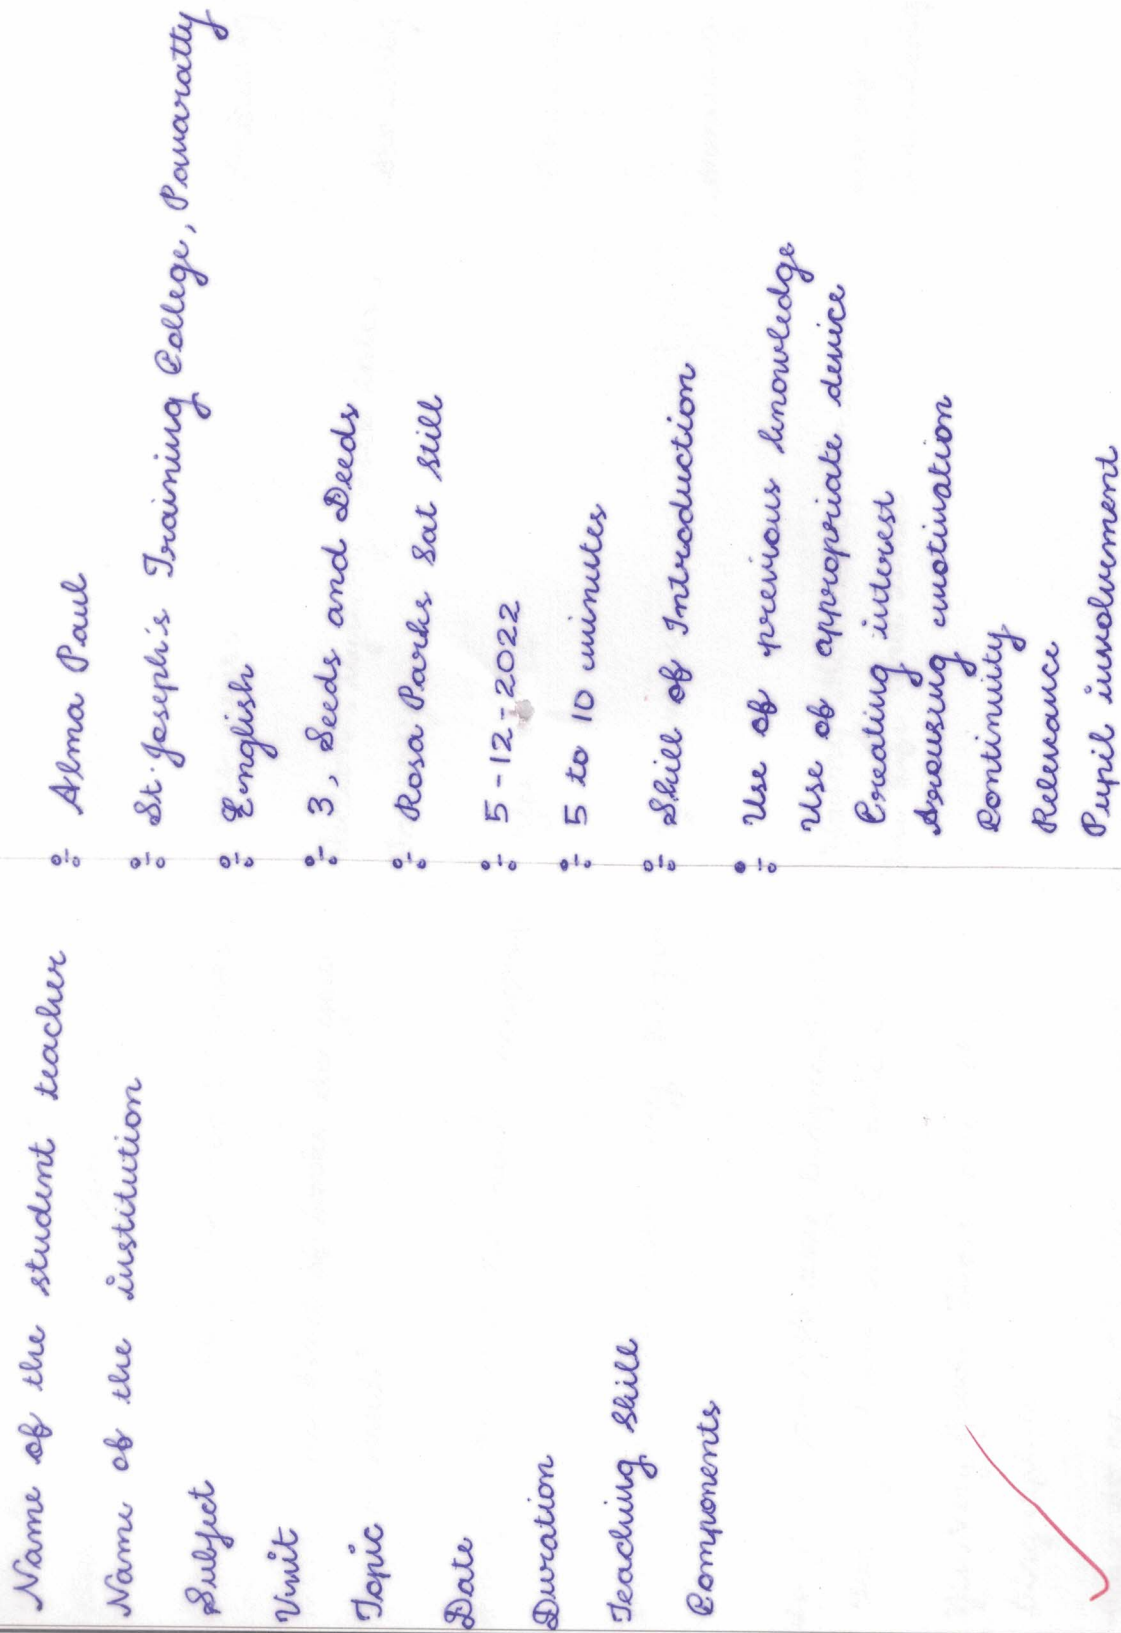 Name of the student teacher :- Alma Paul
Name of the institution :- St. Joseph's Training College, Pavaratty
Subject :- English
Unit :- 3, Seeds and Deeds
Topic :- Rosa Parks Sat Still
Date :- 5-12-2022
Duration :- 5 to 10 minutes
Teaching Skill :- Skill of Introduction
Components :- Use of previous knowledge
Use of appropriate device
Creating interest
Arousing motivation
Continuity
Relevance
Pupil involvement